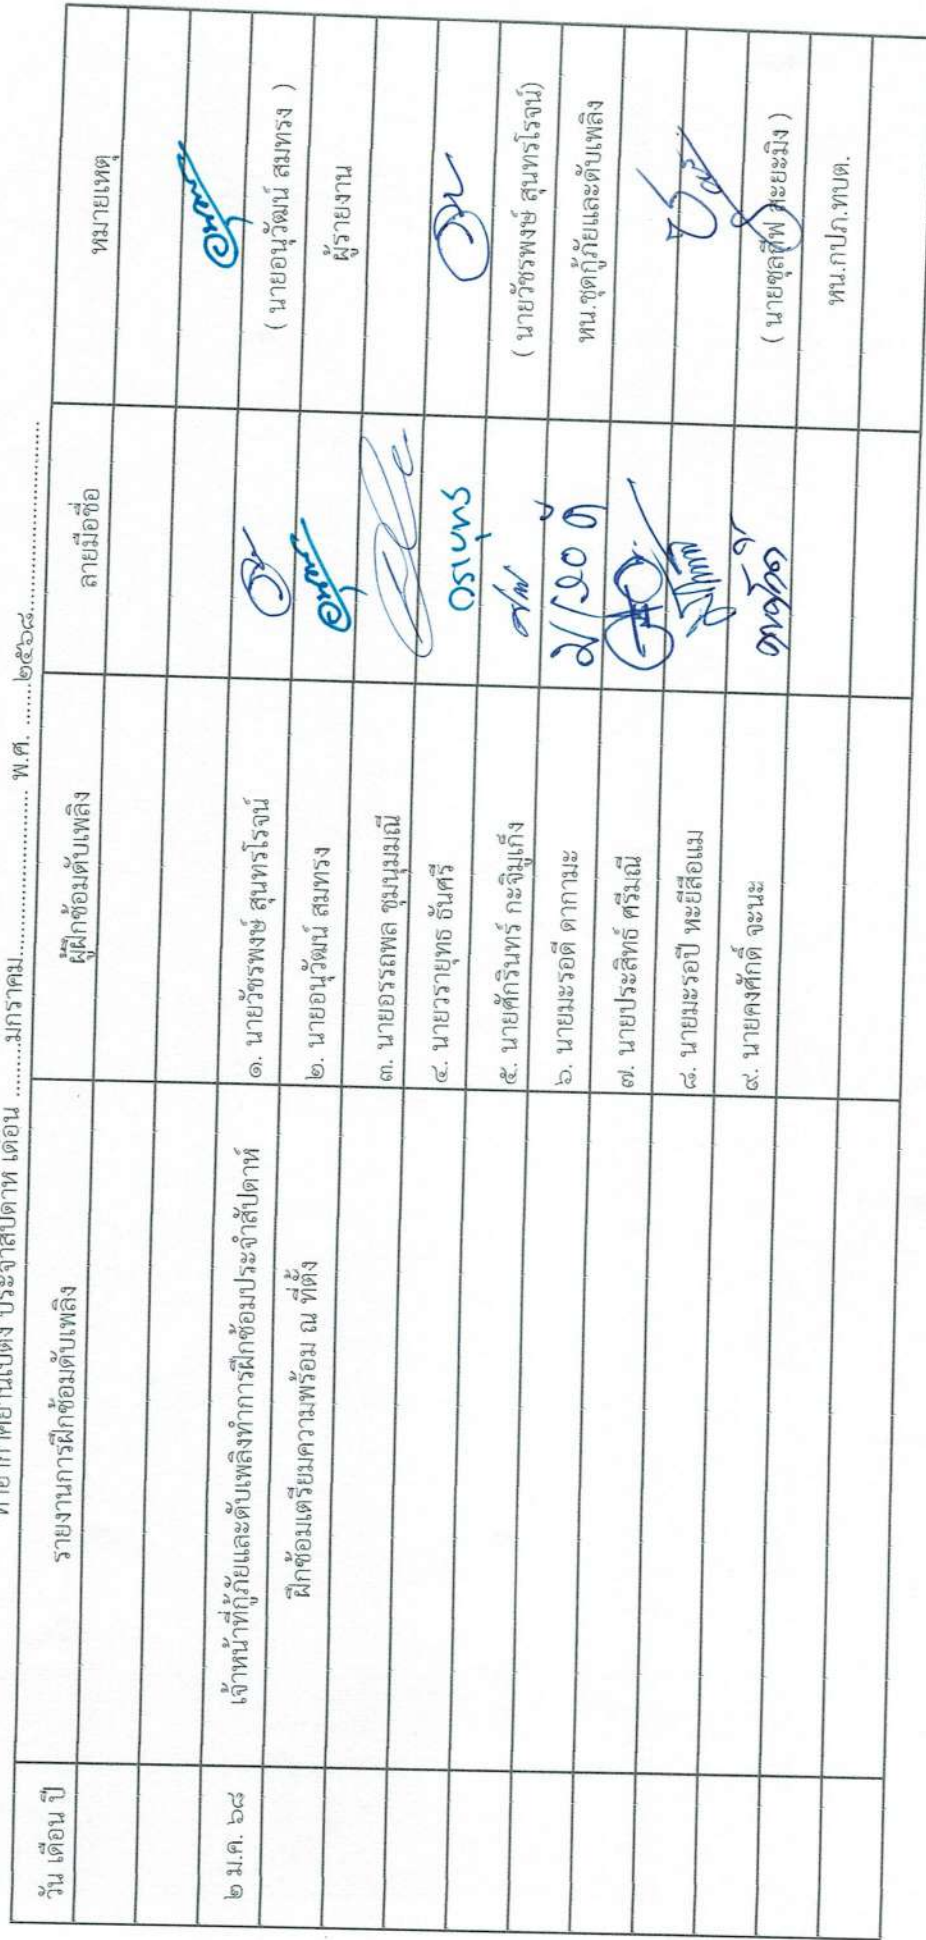 ท่าอากาศยานเบตง ประจำสัปดาห์ เดือน .........มกราคม.............................. พ.ศ. .......๒๕๖๘...............................
วัน เดือน ปี รายงานการฝึกซ้อมดับเพลิง ผู้ฝึกซ้อมดับเพลิง ลายมือชื่อ หมายเหตุ
๒ ม.ค. ๖๘ เจ้าหน้าที่กู้ภัยและดับเพลิงทำการฝึกซ้อมประจำสัปดาห์ ๑. นายวัชรพงษ์ สุนทรโรจน์ ( นายอนุวัฒน์ สมทรง )
ฝึกซ้อมเตรียมความพร้อม ณ ที่ตั้ง ๒. นายอนุวัฒน์ สมทรง ผู้รายงาน
๓. นายอรรถพล ชุมนุมมณี
๔. นายวรายุทธ ธันศรี วรายุทธ
๕. นายศักรินทร์ กะจิมูเก็ง ( นายวัชรพงษ์ สุนทรโรจน์)
๖. นายมะรอดี ดากามะ หน.ชุดกู้ภัยและดับเพลิง
๗. นายประสิทธิ์ ศรีมณี
๘. นายมะรอปี หะยีสือแม
๙. นายคงศักดิ์ จะนะ ( นายซุลกีฟ สะยะมิง )
หน.กปภ.ทบต.